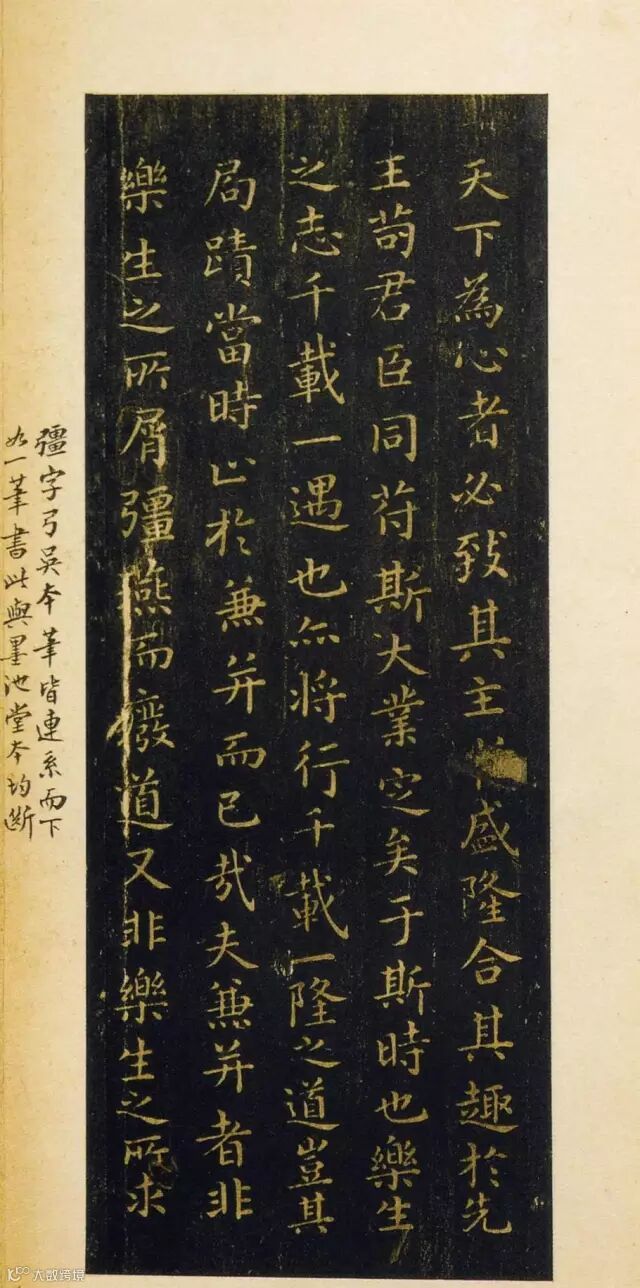 天下為心者必致其主於盛隆合其趣於先
王苟君臣同符斯大業定矣于斯時也樂生
之志千載一遇也亦將行千載一隆之道豈其
局蹟當時止於兼并而已哉夫兼并者非
樂生之所屑彊燕而廢道又非樂生之所求
彊字弓吳本筆皆連系而下
如一筆書此與墨池堂本均斷
大数跨境